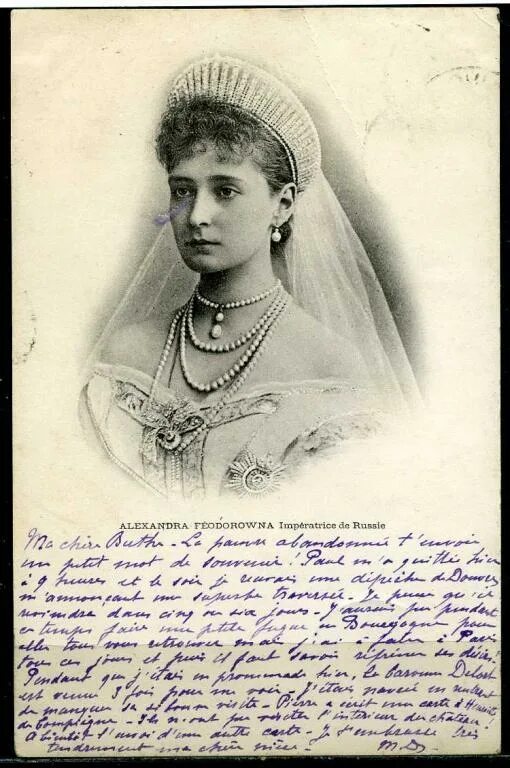 ALEXANDRA FÉODOROWNA Impératrice de Russie
Ma chère Berthe - La pauvre abandonnée t'envoie
un petit mot de souvenir ! Paul m'a quittée hier
à 9 heures et le soir je recevais une dépêche de Douvres
m'annonçant une superbe traversée - Je pense qu'il
reviendra dans cinq ou six jours - J'aurais pu pendant
ce temps faire une petite fugue en Bourgogne pour
aller tous vous retrouver mais j'ai à faire à Paris
tous ces jours et puis il faut savoir réprimer ses désirs !
Pendant que j'étais en promenade hier, le baronne
est venue 3 fois pour me voir - j'étais navrée en rentrant
de manquer sa si bonne visite - Pierre a écrit une carte à
de Compiègne - Ils n'ont pu visiter l'intérieur du château !
A bientôt l'envoi d'une autre carte - Je t'embrasse très
tendrement ma chère
M. D.